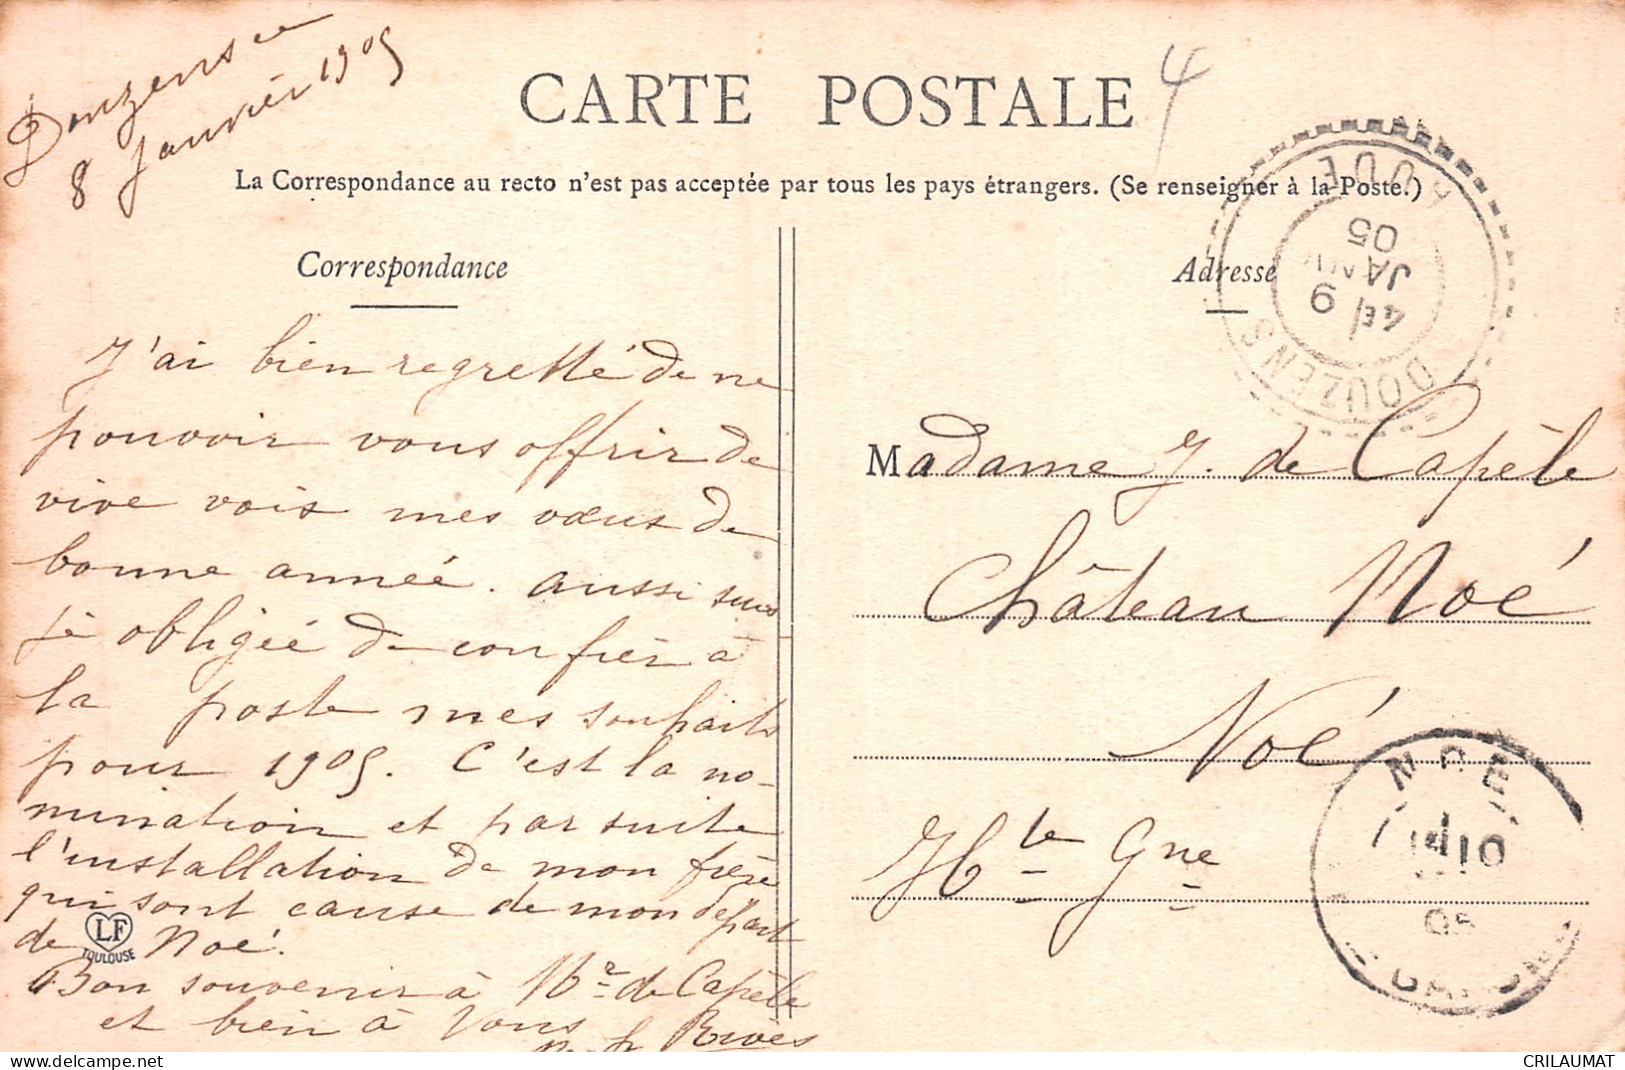 Douzens ce
8 Janvier 1905
CARTE POSTALE
4
La Correspondance au recto n'est pas acceptée par tous les pays étrangers. (Se renseigner à la Poste.)
Correspondance
J'ai bien regretté de ne
pouvoir vous offrir de
vive voix mes vœux de
bonne année. aussi suis
je obligée de confier à
la poste mes souhaits
pour 1905. C'est la no-
mination et par suite
l'installation de mon frère
qui sont cause de mon départ
de Noé.
Bon souvenir à Mr de Capèle
et bien à Vous
Rivès
LF
TOULOUSE
Adresse
DOUZENS
AUDE
4E
9
JANV
05
Madame J. de Capèle
Château Noé
Noé
Hte Gne
NOE
10
05
CRILAUMAT